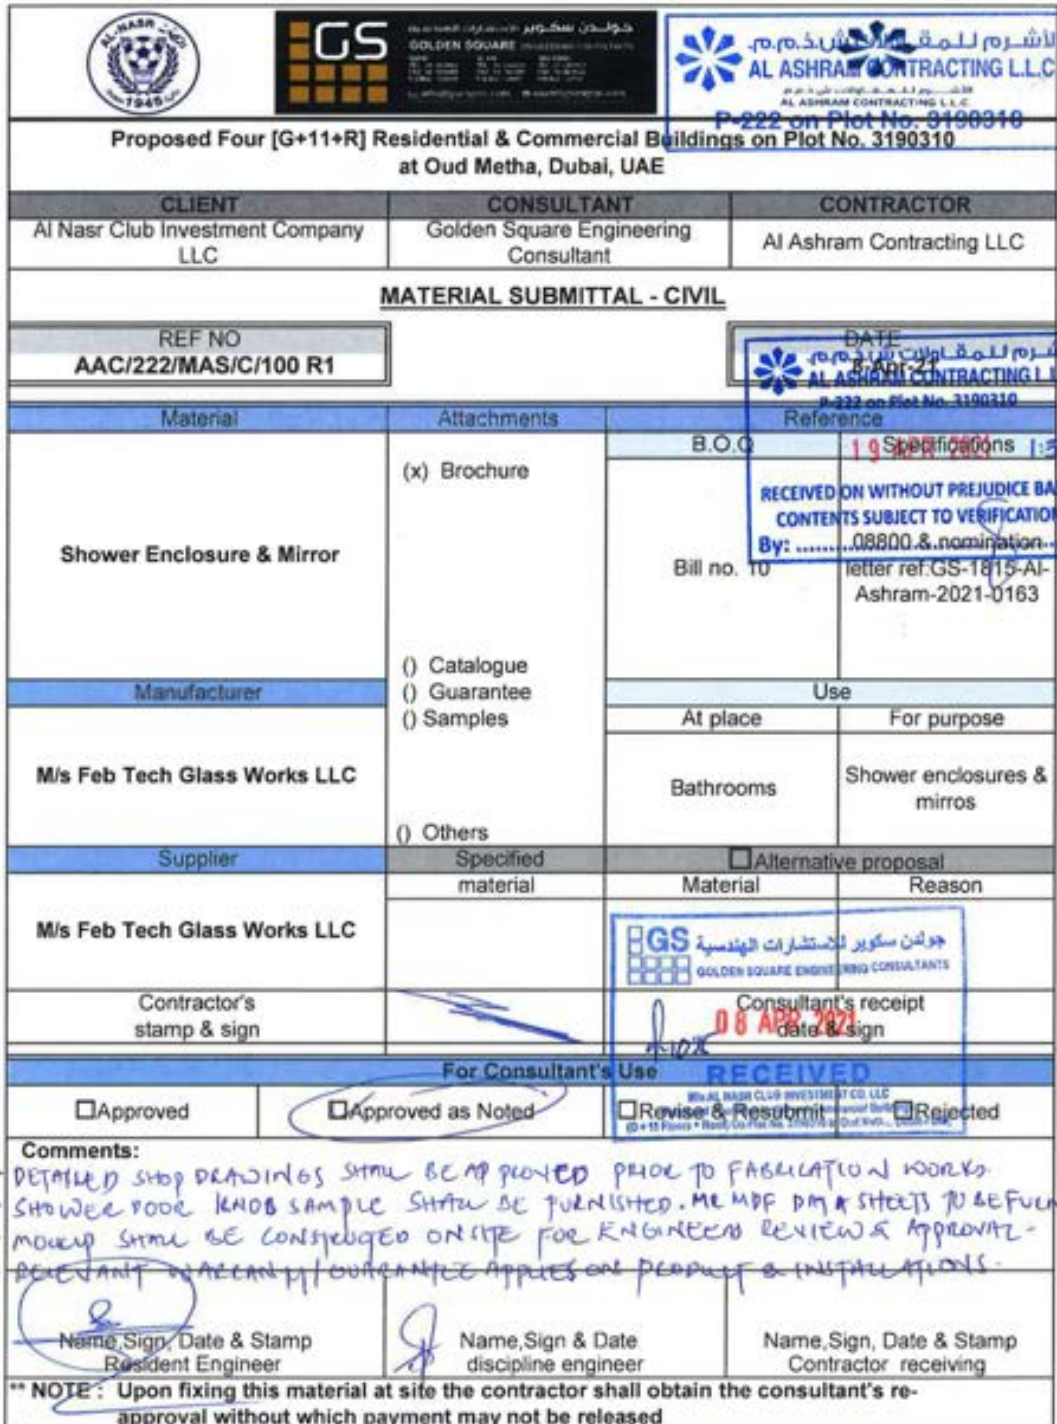 AL-NASR
1945
GS
جولدن سكوير
GOLDEN SQUARE
الأشرم للمقاولات ش.ذ.م.م.
AL ASHRAM CONTRACTING L.L.C
AL ASHRAM CONTRACTING L.L.C.
P-222 on Plot No. 3190310
Proposed Four [G+11+R] Residential & Commercial Buildings on Plot No. 3190310
at Oud Metha, Dubai, UAE
CLIENT CONSULTANT CONTRACTOR
Al Nasr Club Investment Company
LLC
Golden Square Engineering
Consultant
Al Ashram Contracting LLC
MATERIAL SUBMITTAL - CIVIL
REF NO
AAC/222/MAS/C/100 R1
DATE
8-Apr-21
AL ASHRAM CONTRACTING L.L
P-222 on Plot No. 3190310
19 APR 2021 1:5
RECEIVED ON WITHOUT PREJUDICE BA
CONTENTS SUBJECT TO VERIFICATION
By:
Material Attachments Reference
B.O.Q Specifications
(x) Brochure
Shower Enclosure & Mirror
Bill no. 10
08800 & nomination
letter ref.GS-1815-Al-
Ashram-2021-0163
() Catalogue
() Guarantee
() Samples
() Others
Manufacturer
Use
At place For purpose
M/s Feb Tech Glass Works LLC
Bathrooms
Shower enclosures &
mirros
Supplier Specified
material
Alternative proposal
Material Reason
M/s Feb Tech Glass Works LLC
GS جولدن سكوير للاستشارات الهندسية
GOLDEN SQUARE ENGINEERING CONSULTANTS
08 APR 2021
RECEIVED
M/s AL NASR CLUB INVESTMENT CO. LLC
Contractor's
stamp & sign
Consultant's receipt
date & sign
For Consultant's Use
Approved Approved as Noted Revise & Resubmit Rejected
Comments:
DETAILED SHOP DRAWINGS SHALL BE APPROVED PRIOR TO FABRICATION WORKS.
SHOWER DOOR KNOB SAMPLE SHALL BE FURNISHED. MR MDF DATA SHEETS TO BE FURN
MOCKUP SHALL BE CONSTRUCTED ON SITE FOR ENGINEERS REVIEW & APPROVAL-
RELEVANT WARRANTY/GUARANTEE APPLIES ON PRODUCT & INSTALLATIONS.
Name,Sign, Date & Stamp
Resident Engineer
Name,Sign & Date
discipline engineer
Name,Sign, Date & Stamp
Contractor receiving
** NOTE : Upon fixing this material at site the contractor shall obtain the consultant's re-
approval without which payment may not be released